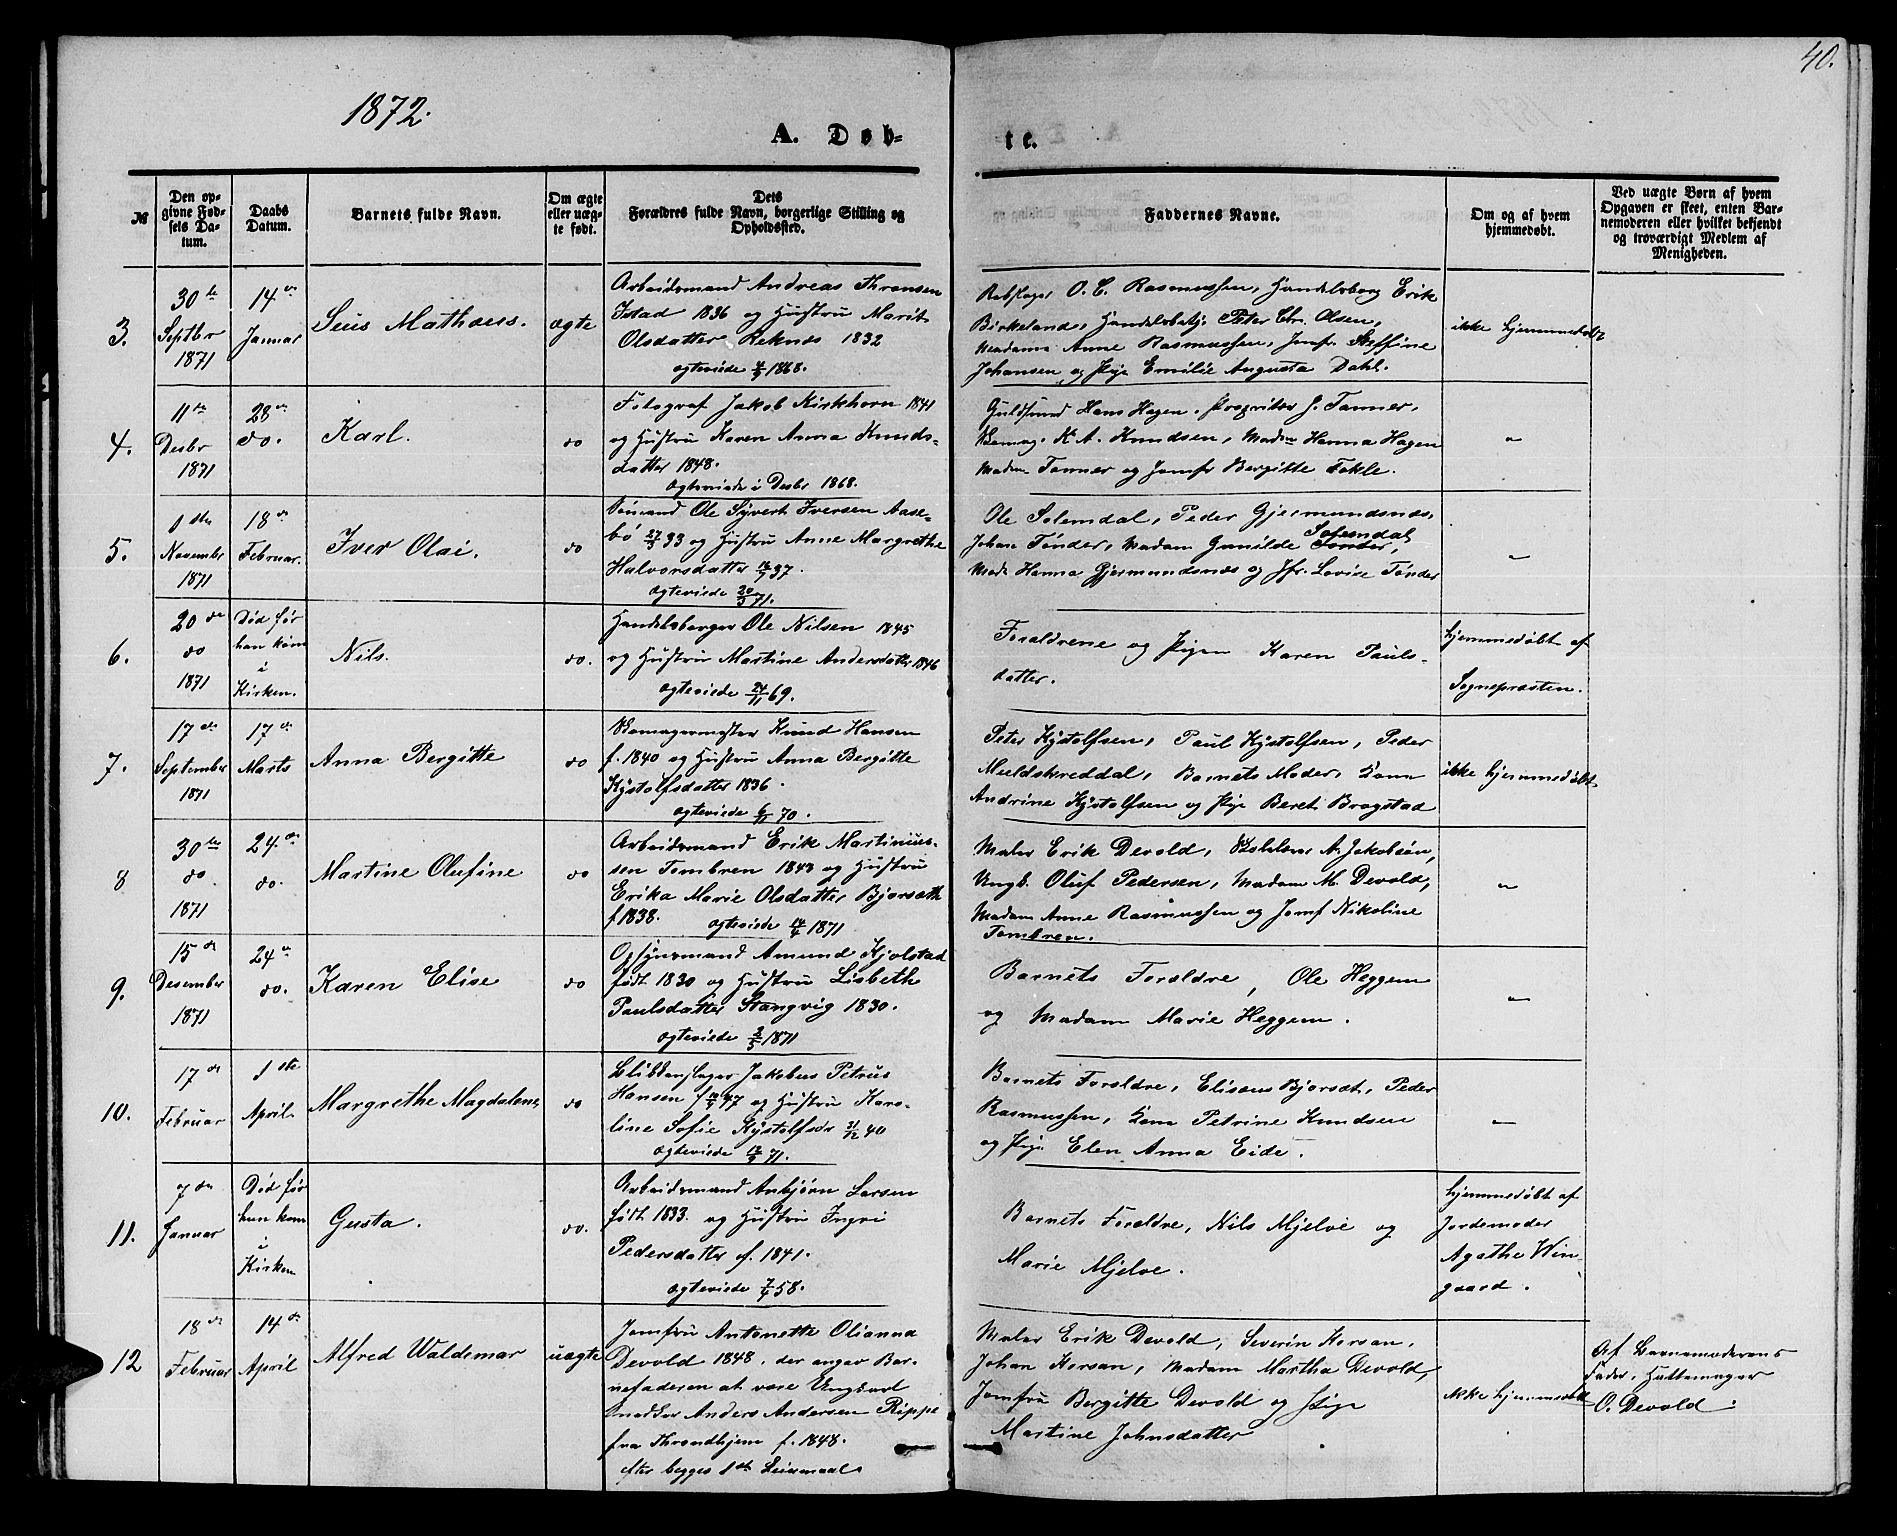 40.
1872.
A. Døb-
te.
№
Den op-
givne Fød-
sels Da-
tum.
Daabs
Datum.
Barnets fulde Navn.
Om ægte
eller uæg-
te født.
Dets
Forældres fulde Navn, borgerlige Stilling og
Opholdssted.
Faddernes Navne.
Om og af hvem
hjemmedøbt.
Ved uægte Børn af hvem
Opgaven er skeet, enten Bar-
nemoderen eller hvilket bekjendt
og troværdigt Medlem af
Menigheden.
3.
30te
Septbr
1871
14de
Januar
Sius Mathæus.
ægte
Arbeidsmand Andreas Thronsen
Istad 1836 og Hustru Marit
Olsdatter Reknæs 1832
ægteviede 1868.
Rebslager O. C. Rasmussen, Handelsborg Erik
Birkeland, Handelsbetj. Peter Chr. Olsen,
Madame Anne Rasmussen, Jomfr Steffine
Johansen og Pige Emilie Augusta Dahl.
ikke hjemmedøbt
4.
11te
Desbr
1871
28de
do.
Karl.
do
Fotograf Jakob Kirkhorn 1841
og Hustru Karen Anna Knuds-
datter 1848.
ægteviede i Desbr 1868.
Guldsmed Hans Hagen, Propritær J. Tanner,
K. A. Knudsen, Madm Hanna Hagen
Madm Tanner og Jomfr Bergitte Fokle.
"
5.
1ste
November
1871
18de
Februar.
Iver Olai.
do
Sömand Ole Syvert Iversen Aase-
bö 33 og Hustru Anne Margrethe
Halvorsdatter 37.
ægteviede 20/3 71.
Ole Solemdal, Peder Gjermundsnæs,
Johan Tönder, Madam Gunilde Tönder, Solemdal
Mad. Hanna Gjermundsnæs og Jfr. Lovise Tönder
"
6.
20de
do
1871
Död för
han kom
i
Kirken.
Nils.
do.
Handelsborger Ole Nilsen 1845
og Hustru Martine Andersdatter 1846
ægteviede 24/11 69.
Forældrene og Pigen Karen Pauls-
datter.
hjemmedøbt af
Sognepræsten.
7.
17de
September
1871
17de
Marts
Anna Bergitte
do
Knud Hansen
f. 1840 og Hustru Anna Bergitte
Kystolfsdatter 1836.
ægteviede 6/11 70.
Peter Kystolfsen, Paul Kystolfsen, Peder
Meeldskreddal, Barnets Moder, Kone
Andrine Kystolfsen og Pige Beret Brogstad
ikke hjemmedøbt
8
30te
do
1871
24de
do.
Martine Olufine
do
Arbeidsmand Erik Martinius-
sen Tombren 1843 og Hustru
Erika Marie Olsdatter Bjorsæth
f 1838. ægteviede 14/4 1871
Maler Erik Devold, A. Jakobsön,
Ungk. Oluf Pedersen, Madam M. Devold,
Madam Anne Rasmussen og Jomf Nikoline
Tombren.
"
9.
15de
Desember
1871
24de
do.
Karen Elise
do
Opsynsmand Amund Kjolstad
født 1830 og Hustru Lisbeth
Paulsdatter Stangvig 1830.
ægteviede 2/5 1871
Barnets Forældre, Ole Heggem
og Madam Marie Heggem.
"
10.
17de
Februar
1ste
April.
Margrethe Magdalene
do
Blikkenslager Jakobus Petrus
Hansen f 47 og Hustru Karo-
line Sofie Kystolfsdr 31/12 40
ægteviede 71.
Barnets Forældre, Elisæus Bjorsæt, Peder
Rasmussen, Kone Petrine Knudsen
og Pige Elen Anna Eide.
"
11.
7de
Januar
Död för
hun kom
i
Kirken
Gusta.
do.
Arbeidsmand Anbjörn Larsen
født 1833 og Hustru Ingri
Pedersdatter f. 1841.
ægteviede 7/4 58.
Barnets Forældre, Nils Mjelve og
Marie Mjelve.
hjemmedøbt af
Jordemoder
Agathe Win-
gaard.
12
18de
Februar
14de
April
Alfred Waldemar
uægte
Jomfru Antonette Olianna
Devold 1848, der angav Bar-
nefaderen at være Ungkarl
Snedker Anders Andersen Rippe
fra Throndhjem f. 1848.
efter begges 1ste Leiermaal.
Maler Erik Devold, Severin Korsan,
Johan Korsan, Madam Martha Devold,
Jomfru Bergitte Devold og Pige
Martine Johnsdatter
ikke hjemmedøbt
Af Barnemoderens
Fader, Hattemager
O. Devold.